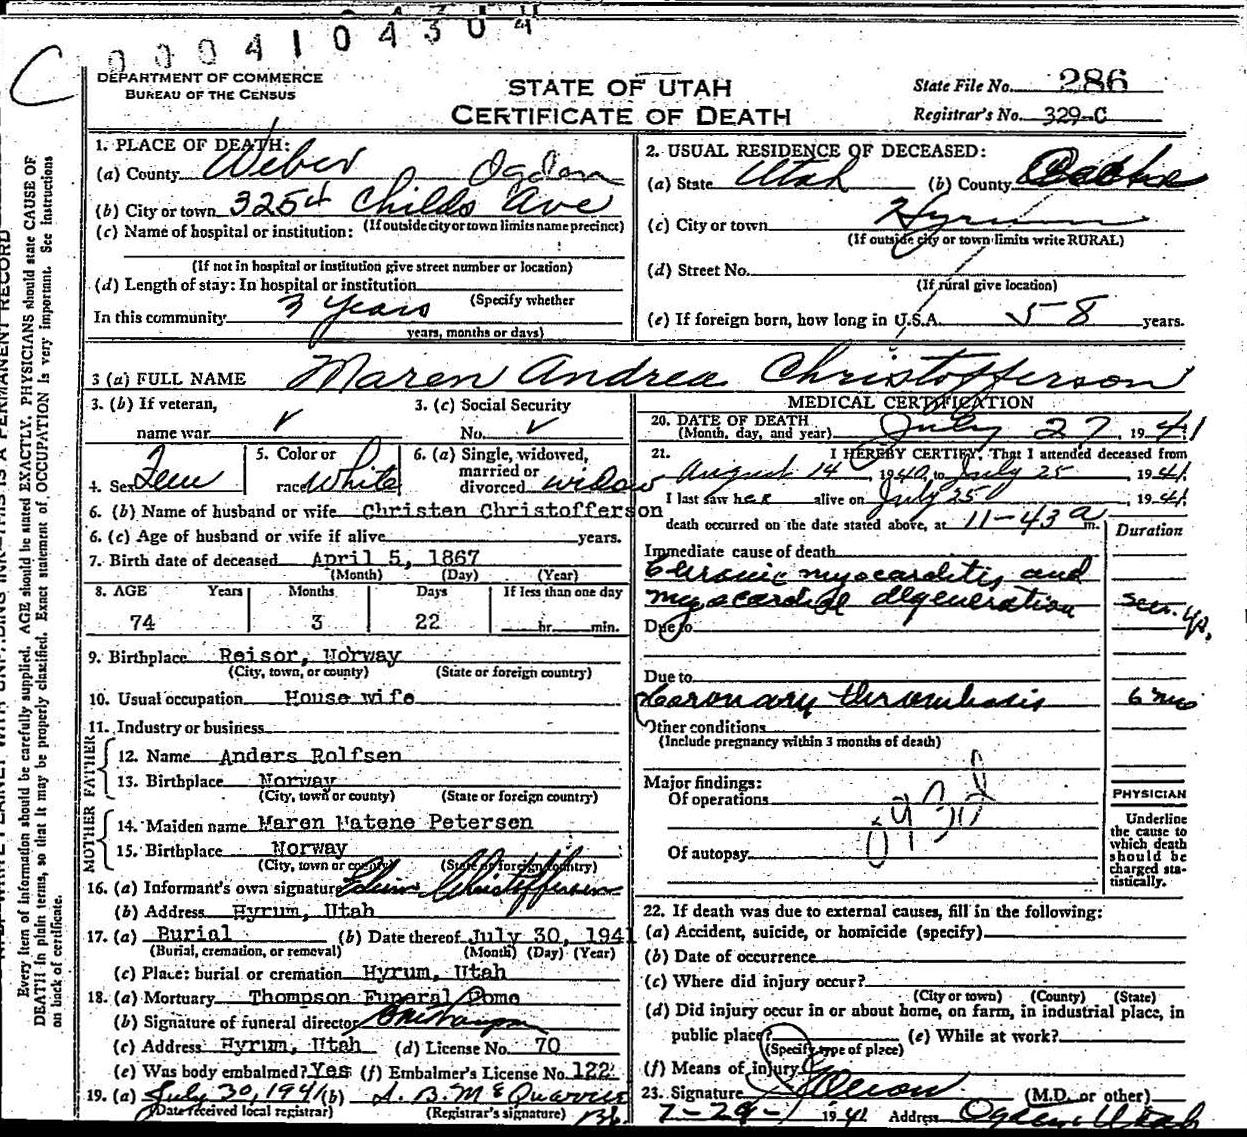 0004104304
C
DEPARTMENT OF COMMERCE
BUREAU OF THE CENSUS
STATE OF UTAH
CERTIFICATE OF DEATH
State File No. 286
Registrar's No. 329-C
Every item of information should be carefully supplied. AGE should be stated EXACTLY. PHYSICIANS should state CAUSE OF
DEATH in plain terms, so that it may be properly classified. Exact statement of OCCUPATION is very important. See instructions
on back of certificate.
1. PLACE OF DEATH:
(a) County Weber Ogden
(b) City or town 3254 Childs Ave
(If outside city or town limits name precinct)
(c) Name of hospital or institution:
(If not in hospital or institution give street number or location)
(d) Length of stay: In hospital or institution
(Specify whether
In this community 3 Years
years, months or days)
2. USUAL RESIDENCE OF DECEASED:
(a) State Utah (b) County Cache
(c) City or town Hyrum
(If outside city or town limits write RURAL)
(d) Street No.
(If rural give location)
(e) If foreign born, how long in U.S.A. 58 years.
3 (a) FULL NAME Maren Andrea Christofferson
3. (b) If veteran,
name war
3. (c) Social Security
No.
4. Sex Fem
5. Color or
race White
6. (a) Single, widowed,
married or
divorced widow
6. (b) Name of husband or wife Christen Christofferson
6. (c) Age of husband or wife if alive years.
7. Birth date of deceased April 5, 1867
(Month) (Day) (Year)
8. AGE Years Months Days If less than one day
74 3 22 hr. min.
9. Birthplace Reisor, Norway
(City, town, or county) (State or foreign country)
10. Usual occupation House wife
11. Industry or business
FATHER
12. Name Anders Rolfsen
13. Birthplace Norway
(City, town or county) (State or foreign country)
MOTHER
14. Maiden name Maren Matene Petersen
15. Birthplace Norway
(City, town or county) (State or foreign country)
16. (a) Informant's own signature Christoffersen
(b) Address Hyrum, Utah
17. (a) Burial (b) Date thereof July 30, 1941
(Burial, cremation, or removal) (Month) (Day) (Year)
(c) Place: burial or cremation Hyrum, Utah
18. (a) Mortuary Thompson Funeral Home
(b) Signature of funeral director
(c) Address Hyrum, Utah (d) License No. 70
(e) Was body embalmed? Yes (f) Embalmer's License No. 122
19. (a) July 30, 1941 (b) A. B. McQuarrie
(Date received local registrar) (Registrar's signature)
MEDICAL CERTIFICATION
20. DATE OF DEATH
(Month, day, and year) July 27, 1941
21. I HEREBY CERTIFY, That I attended deceased from
August 14, 1940, to July 25, 1941.
I last saw her alive on July 25, 1941.
death occurred on the date stated above, at 11-43 a m.
Duration
Immediate cause of death
Chronic myocarditis and
myocardial degeneration sev. yr.
Due to
Due to
Coronary thrombosis 6 mo
Other conditions
(Include pregnancy within 3 months of death)
Major findings:
Of operations
Of autopsy
PHYSICIAN
Underline
the cause to
which death
should be
charged sta-
tistically.
22. If death was due to external causes, fill in the following:
(a) Accident, suicide, or homicide (specify)
(b) Date of occurrence
(c) Where did injury occur?
(City or town) (County) (State)
(d) Did injury occur in or about home, on farm, in industrial place, in
public place? (e) While at work?
(Specify type of place)
(f) Means of injury
23. Signature (M.D. or other)
7-29- 1941 Address Ogden Utah